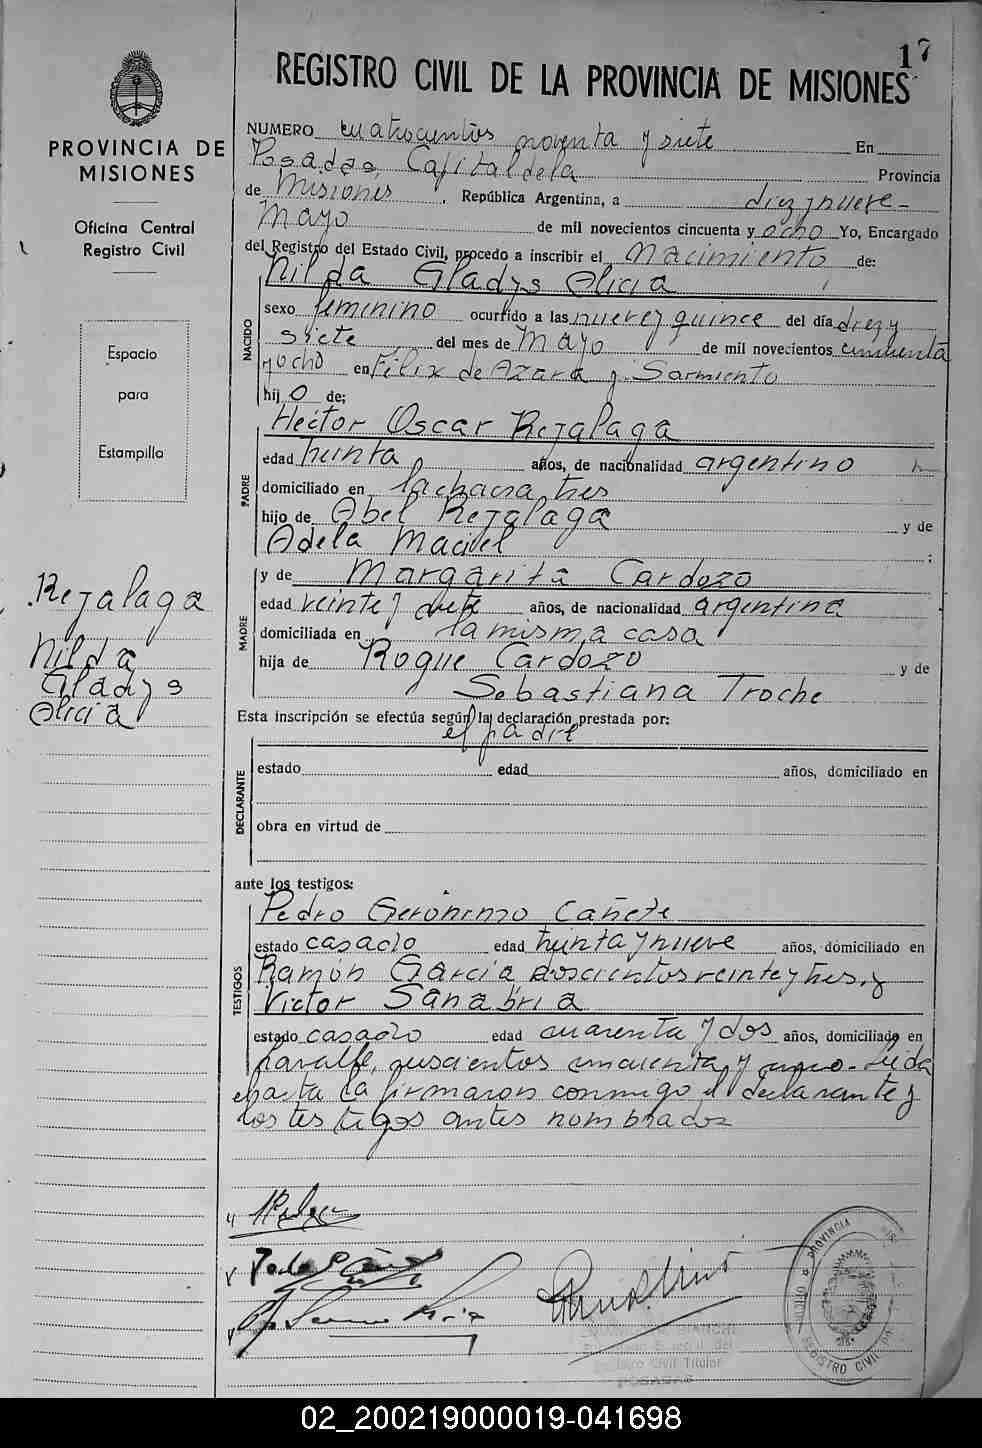 17
REGISTRO CIVIL DE LA PROVINCIA DE MISIONES
PROVINCIA DE
MISIONES
Oficina Central
Registro Civil
Espacio
para
Estampilla
Rejalaga
Nilda
Gladys
Alicia
NUMERO cuatrocientos noventa y siete En
Posadas, Capital de la Provincia
de Misiones, República Argentina, a diez y nueve-
Mayo de mil novecientos cincuenta y ocho Yo, Encargado
del Registro del Estado Civil, procedo a inscribir el Nacimiento de:
NACIDO
Nilda Gladys Alicia
sexo femenino ocurrido a las nueve y quince del día diez y
siete del mes de Mayo de mil novecientos cincuenta
y ocho en Félix de Azara y Sarmiento
hij o de;
PADRE
Héctor Oscar Rejalaga
edad treinta años, de nacionalidad argentino
domiciliado en la chacra tres
hijo de Abel Rejalaga y de
Adela Maciel ;
MADRE
y de Margarita Cardozo
edad veinte y siete años, de nacionalidad argentina
domiciliada en la misma casa
hija de Roque Cardozo y de
Sebastiana Troche
Esta inscripción se efectúa según la declaración prestada por:
el padre
DECLARANTE
estado edad años, domiciliado en
obra en virtud de
ante los testigos:
TESTIGOS
Pedro Gerónimo Cañete
estado casado edad treinta y nueve años, domiciliado en
Ramón García doscientos veinte y tres, y
Victor Sanabria
estado casado edad cuarenta y dos años, domiciliado en
cincuenta y Leida
el acta la firmaron conmigo el declarante y
los testigos antes nombrados
PROVINCIA
REGISTRO CIVIL
Registro Civil Titular
POSADAS
02_200219000019-041698